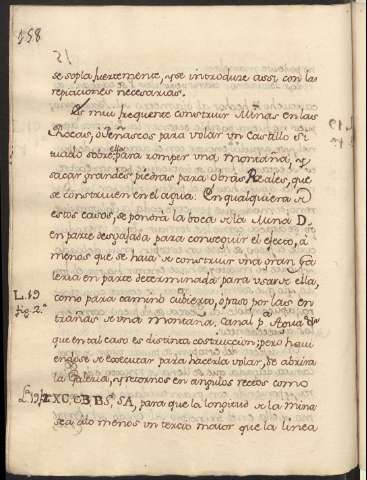 558
se sopla fuertemente, y se introduze assi con las
repticiones necesarias.
Es mui frequente construir Minas en las
Rocas, ò Peñascos para volar un Castillo si
tuado sobre ellos para romper vna montaña, y
sacar grandes piedras para obras Reales, que
se construien en el agua. En qualquiera de
estos casos, se pondra la boca de la Mina D,
en parte desviada para conseguir el efecto, à
menos que se haia de construir vna gran Ga
leria en parte determinada para usar de ella,
como para camino cubierto, ò paso por las en
trañas de vna montaña, canal pª Agua &ª
que en tal caso es distinta costruccion; pero haui
endose de executar para hacerla volar, se abrira
la Galeria, y retornos en angulos rectos como
ZXC, CB BS, SA, para que la longitud de la mina
sea alo menos un tercio maior que la linea
L. 19
fig. 2.ª
Lª 19